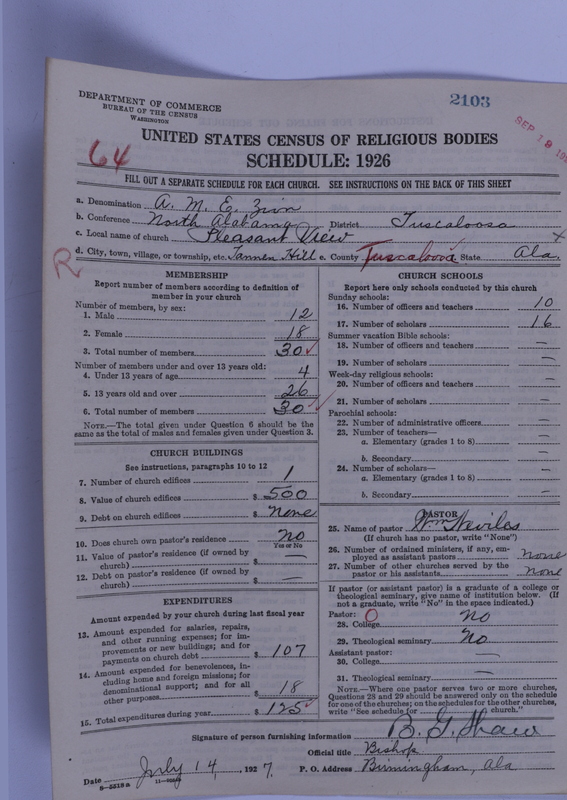 DEPARTMENT OF COMMERCE
BUREAU OF THE CENSUS
WASHINGTON
2103
SEP 19
64
UNITED STATES CENSUS OF RELIGIOUS BODIES
SCHEDULE: 1926
FILL OUT A SEPARATE SCHEDULE FOR EACH CHURCH. SEE INSTRUCTIONS ON THE BACK OF THIS SHEET
a. Denomination A. M. E. Zion
b. Conference North Alabama District Tuscaloosa
c. Local name of church Pleasant View x
d. City, town, village, or township, etc. Tannen Hill e. County Tuscaloosa State Ala.
R
MEMBERSHIP
Report number of members according to definition of
member in your church
Number of members, by sex:
1. Male 12
2. Female 18
3. Total number of members 30 ✓
Number of members under and over 13 years old:
4. Under 13 years of age 4
5. 13 years old and over 26
6. Total number of members 30 ✓
NOTE.—The total given under Question 6 should be
same as the total of males and females given under Question 3.
CHURCH BUILDINGS
See instructions, paragraphs 10 to 12
7. Number of church edifices 1
8. Value of church edifices $ 500
9. Debt on church edifices $ None
10. Does church own pastor's residence No
Yes or No
11. Value of pastor's residence (if owned by
church) $ —
12. Debt on pastor's residence (if owned by
church) $ —
EXPENDITURES
Amount expended by your church during last fiscal year
13. Amount expended for salaries, repairs,
and other running expenses; for im-
provements or new buildings; and for
payments on church debt $ 107
14. Amount expended for benevolences, in-
cluding home and foreign missions; for
denominational support; and for all
other purposes $ 18
15. Total expenditures during year $ 125 ✓
CHURCH SCHOOLS
Report here only schools conducted by this church
Sunday schools:
16. Number of officers and teachers 10
17. Number of scholars 16
Summer vacation Bible schools:
18. Number of officers and teachers —
19. Number of scholars —
Week-day religious schools:
20. Number of officers and teachers —
21. Number of scholars —
Parochial schools:
22. Number of administrative officers —
23. Number of teachers—
a. Elementary (grades 1 to 8) —
b. Secondary —
24. Number of scholars—
a. Elementary (grades 1 to 8) —
b. Secondary —
PASTOR
25. Name of pastor Wm Neviles
(If church has no pastor, write "None")
26. Number of ordained ministers, if any, em-
ployed as assistant pastors None
27. Number of other churches served by the
pastor or his assistants None
If pastor (or assistant pastor) is a graduate of a college or
theological seminary, give name of institution below. (If
not a graduate, write "No" in the space indicated.)
Pastor: O
28. College No
29. Theological seminary No
Assistant pastor:
30. College —
31. Theological seminary —
NOTE.—Where one pastor serves two or more churches,
Questions 28 and 29 should be answered only on the schedule
for one of the churches; on the schedules for the other churches,
write "See schedule for church."
Signature of person furnishing information B. G. Shaw
Official title Bishop
Date July 14, 1927. P. O. Address Birmingham, Ala